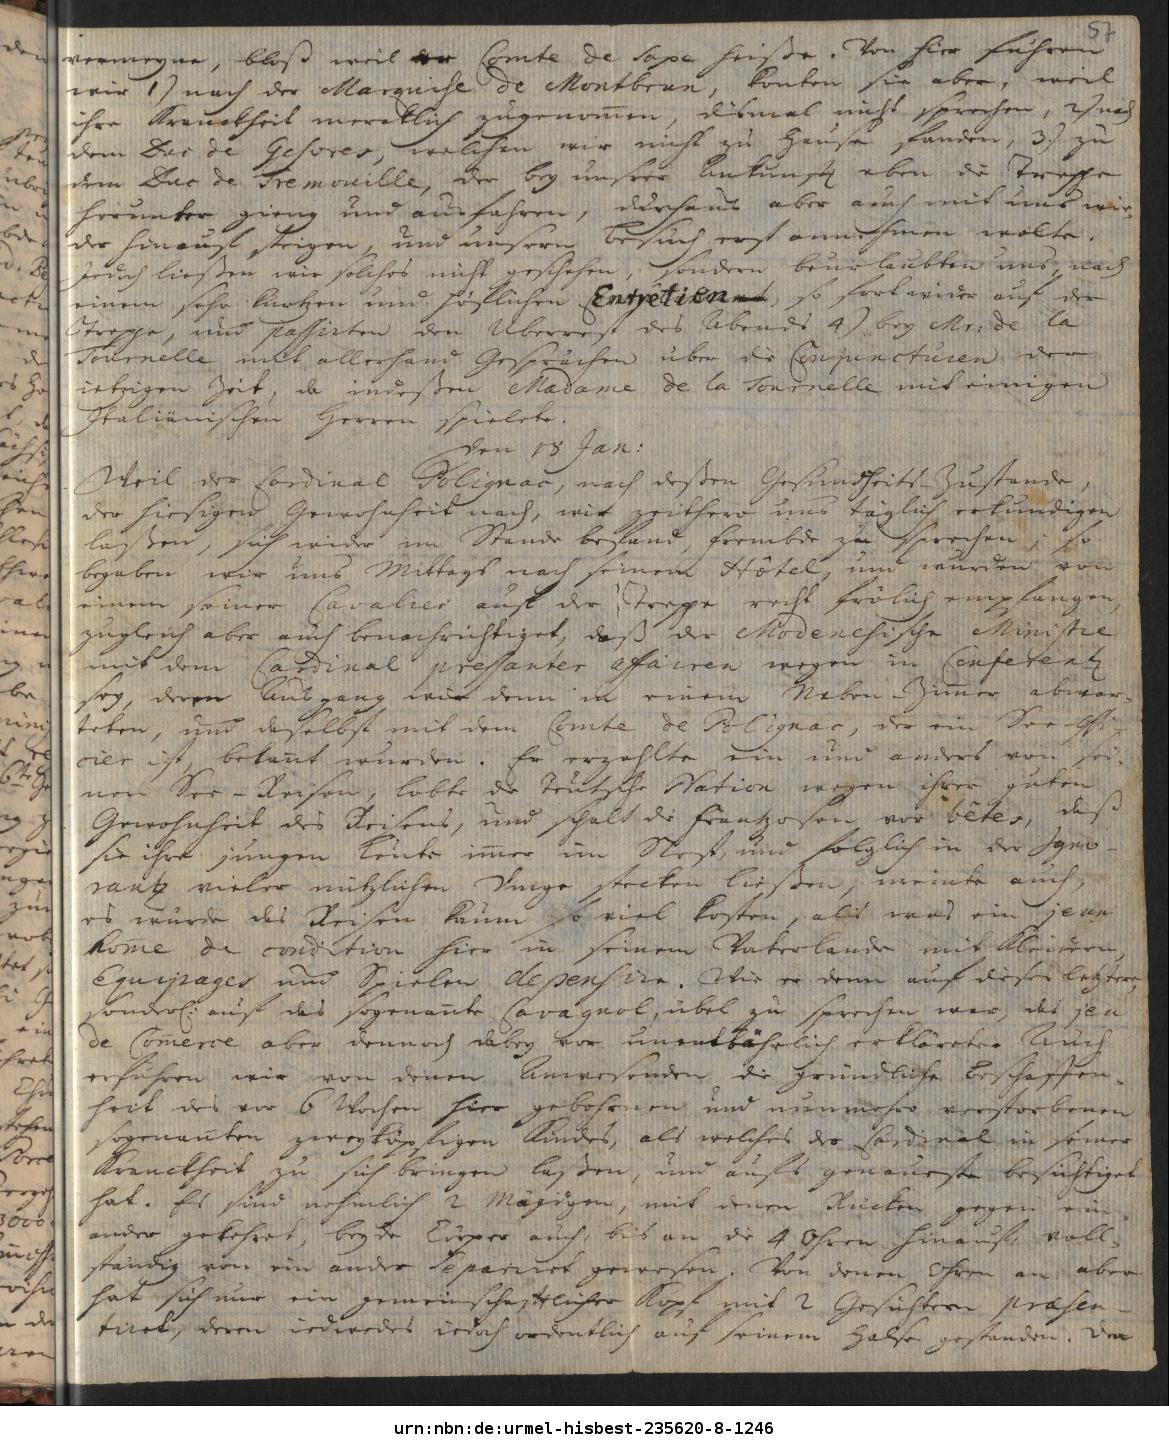 57
vermeyne, bloß weil er Comte de Sape heiße. Von hier fuhren
wir 1) nach der Marquise de Montbrun, konten sie aber, weil
ihre Kranckheit mercklich zugenom̄en, dismal nicht sprechen, 2) nach
dem Duc de Gesvres, welchen wir nicht zu Hause fanden, 3.) zu
dem Duc de Tremouille, der bey unsrer Ankunft eben die Treppe
herunter gieng und ausfahren, durchaus aber auch mit uns wie-
der hinauf steigen, und unsern Besuch erst annehmen wolte.
Jedoch ließen wir solches nicht geschehen, sondern beurlaubten uns, nach
einem sehr kurtzen und höflichen Entretien, so fort wider auf der
Treppe, und passirten den Uberrest des Abends 4) bey Mr: de la
Tournelle mit allerhand Gesprächen über die Conjuncturen der
ietzigen Zeit, da indeßen Madame de la Tournelle mit einigen
Italiänischen Herren spielete.
den 18 Jan:
Weil der Cardinal Polignac, nach deßen Gesundheits-Zustande,
der hiesigen Gewohnheit nach, wir zeithero uns täglich erkundigen
laßen, sich wider im Stande befand, frembde zu sprechen; so
begaben wir uns Mittags nach seinem Hôtel, und wurden von
einem seiner Cavalier auf der Treppe recht frölich empfangen,
zugleich aber auch benachrichtiget, daß der Modenesische Ministre
mit dem Cardinal pressanter affairen wegen in Conferentz
sey, deren Ausgang wir denn in einem Neben-Zim̄er abwar-
teten, und daselbst mit dem Comte de Polignac, der ein See-Offi-
cier ist, bekan̄t wurden. Er erzehlte ein und anders von sei-
nen See-Reisen, lobte die Teutsche Nation wegen ihrer guten
Gewohnheit des Reisens, und schalt die Frantzosen vor bêtes, daß
sie ihre jungen Leute im̄er im Nest, und folglich in der Igno-
rantz vieler nützlichen Dinge stecken ließen, meinte auch,
es würde das Reisen kaum so viel kosten, als was ein jeun
hom̄e de condition hier in seinem Vaterlande mit Kleidern,
Equipages und Spielen depensire. Wie er denn auf dieses letztere,
sonderl: auf das sogenan̄te Cavagnol, übel zu sprechen war, das jeu
de Com̄erce aber dennoch dabey vor unentbährlich erklärete. Auch
erfuhren wir von denen Anwesenden die gründliche Beschaffen-
heit des vor 6 Wochen hier gebohrnen und nunmehro verstorbenen
sogenan̄ten zweyköpfigen Kindes, als welches der Cardinal in seiner
Kranckheit zu sich bringen laßen, und aufs genaueste besichtiget
hat. Es sind nehmlich 2 Mägdgen, mit denen Rücken gegen ein-
ander gekehret, beyde Cörper auch, bis an die 4 Ohren hinauf, voll-
ständig von ein ander separiret gewesen. Von denen Ohren an aber
hat sich nur ein gemeinschafftlicher Kopf mit 2 Gesichtern præsen-
tiret, deren iedwedes iedoch ordentlich auf seinem Halse gestanden. Der
urn:nbn:de:urmel-hisbest-235620-8-1246